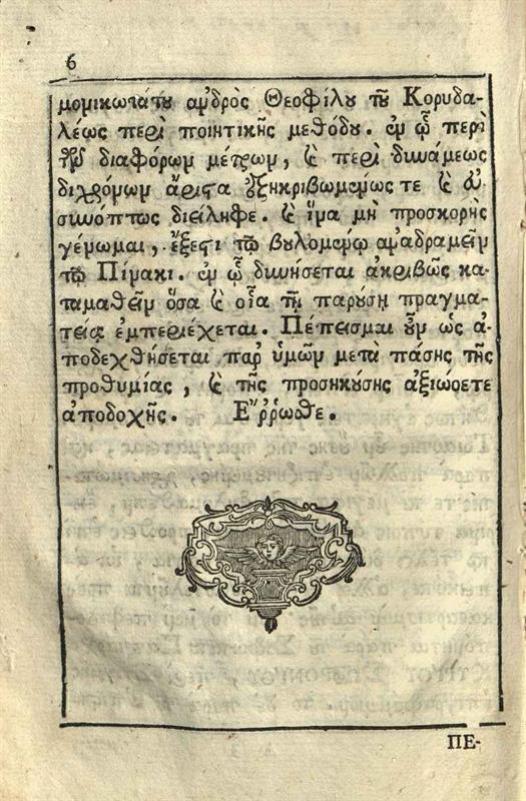 6
νομικωτάτου ἀνδρὸς Θεοφίλου τοῦ Κορυδα-
λέως περὶ ποιητικῆς μεθόδου. ἐν ᾧ περὶ
τῶν διαφόρων μέτρων, καὶ περὶ δυνάμεως
διχρόνων ἄριστα ἐξηκριβωμένως τε καὶ εὐ-
συνόπτως διείληφε. καὶ ἵνα μὴ προσκορὴς
γένωμαι, ἔξεστι τῷ βουλομένῳ ἀναδραμεῖν
τῷ Πίνακι. ἐν ᾧ δυνήσεται ἀκριβῶς κα-
ταμαθεῖν ὅσα καὶ οἷα τῇ παρούσῃ πραγμα-
τείᾳ ἐμπεριέχεται. Πέπεισμαι οὖν ὡς ἀ-
ποδεχθήσεται παρ' ὑμῶν μετὰ πάσης τῆς
προθυμίας, καὶ τῆς προσηκούσης ἀξιώσετε
ἀποδοχῆς. Ἔῤῥωσθε.
ΠΕ-